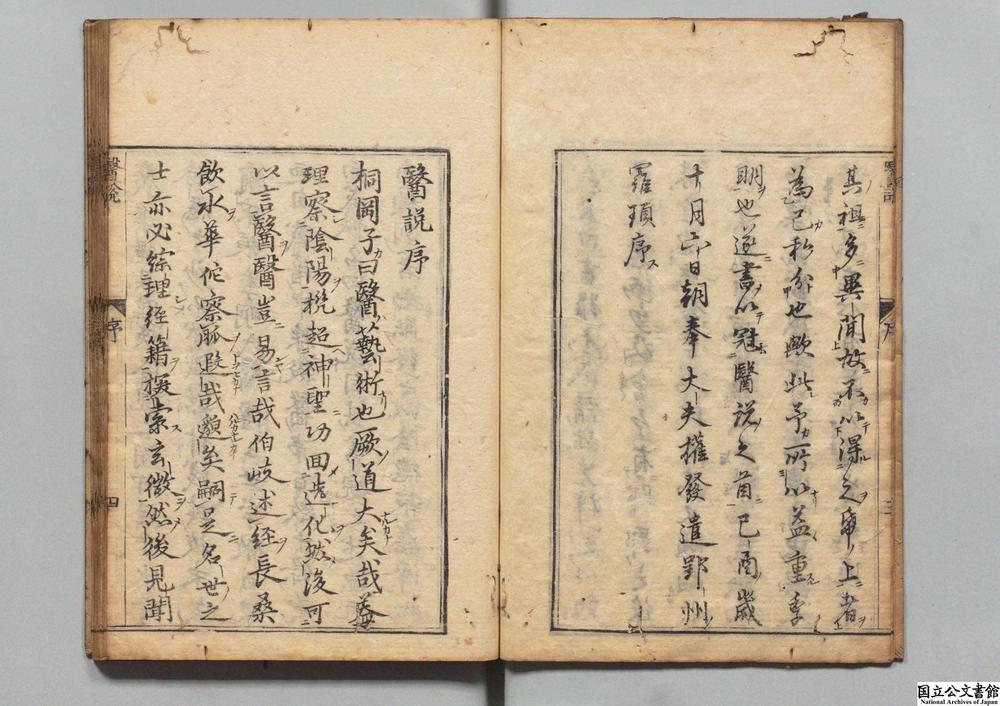 其祖多異聞故不以深之席上者
為己私分也歟此予所以益重季
明也遂書以冠醫説之首己酉歲
十月六日朝奉大夫權發遣鄂州
羅頊序
醫説序
桐岡子曰醫藝術也厥道大矣哉蓋
理察陰陽挽超神聖功回造化然後可
以言醫醫豈易言哉伯岐述經長桑
飲水華佗察脈遐哉邈矣嗣是名世之
士亦必綜理經籍探索玄微然後見聞
醫説
序
四
国立公文書館
National Archives of Japan